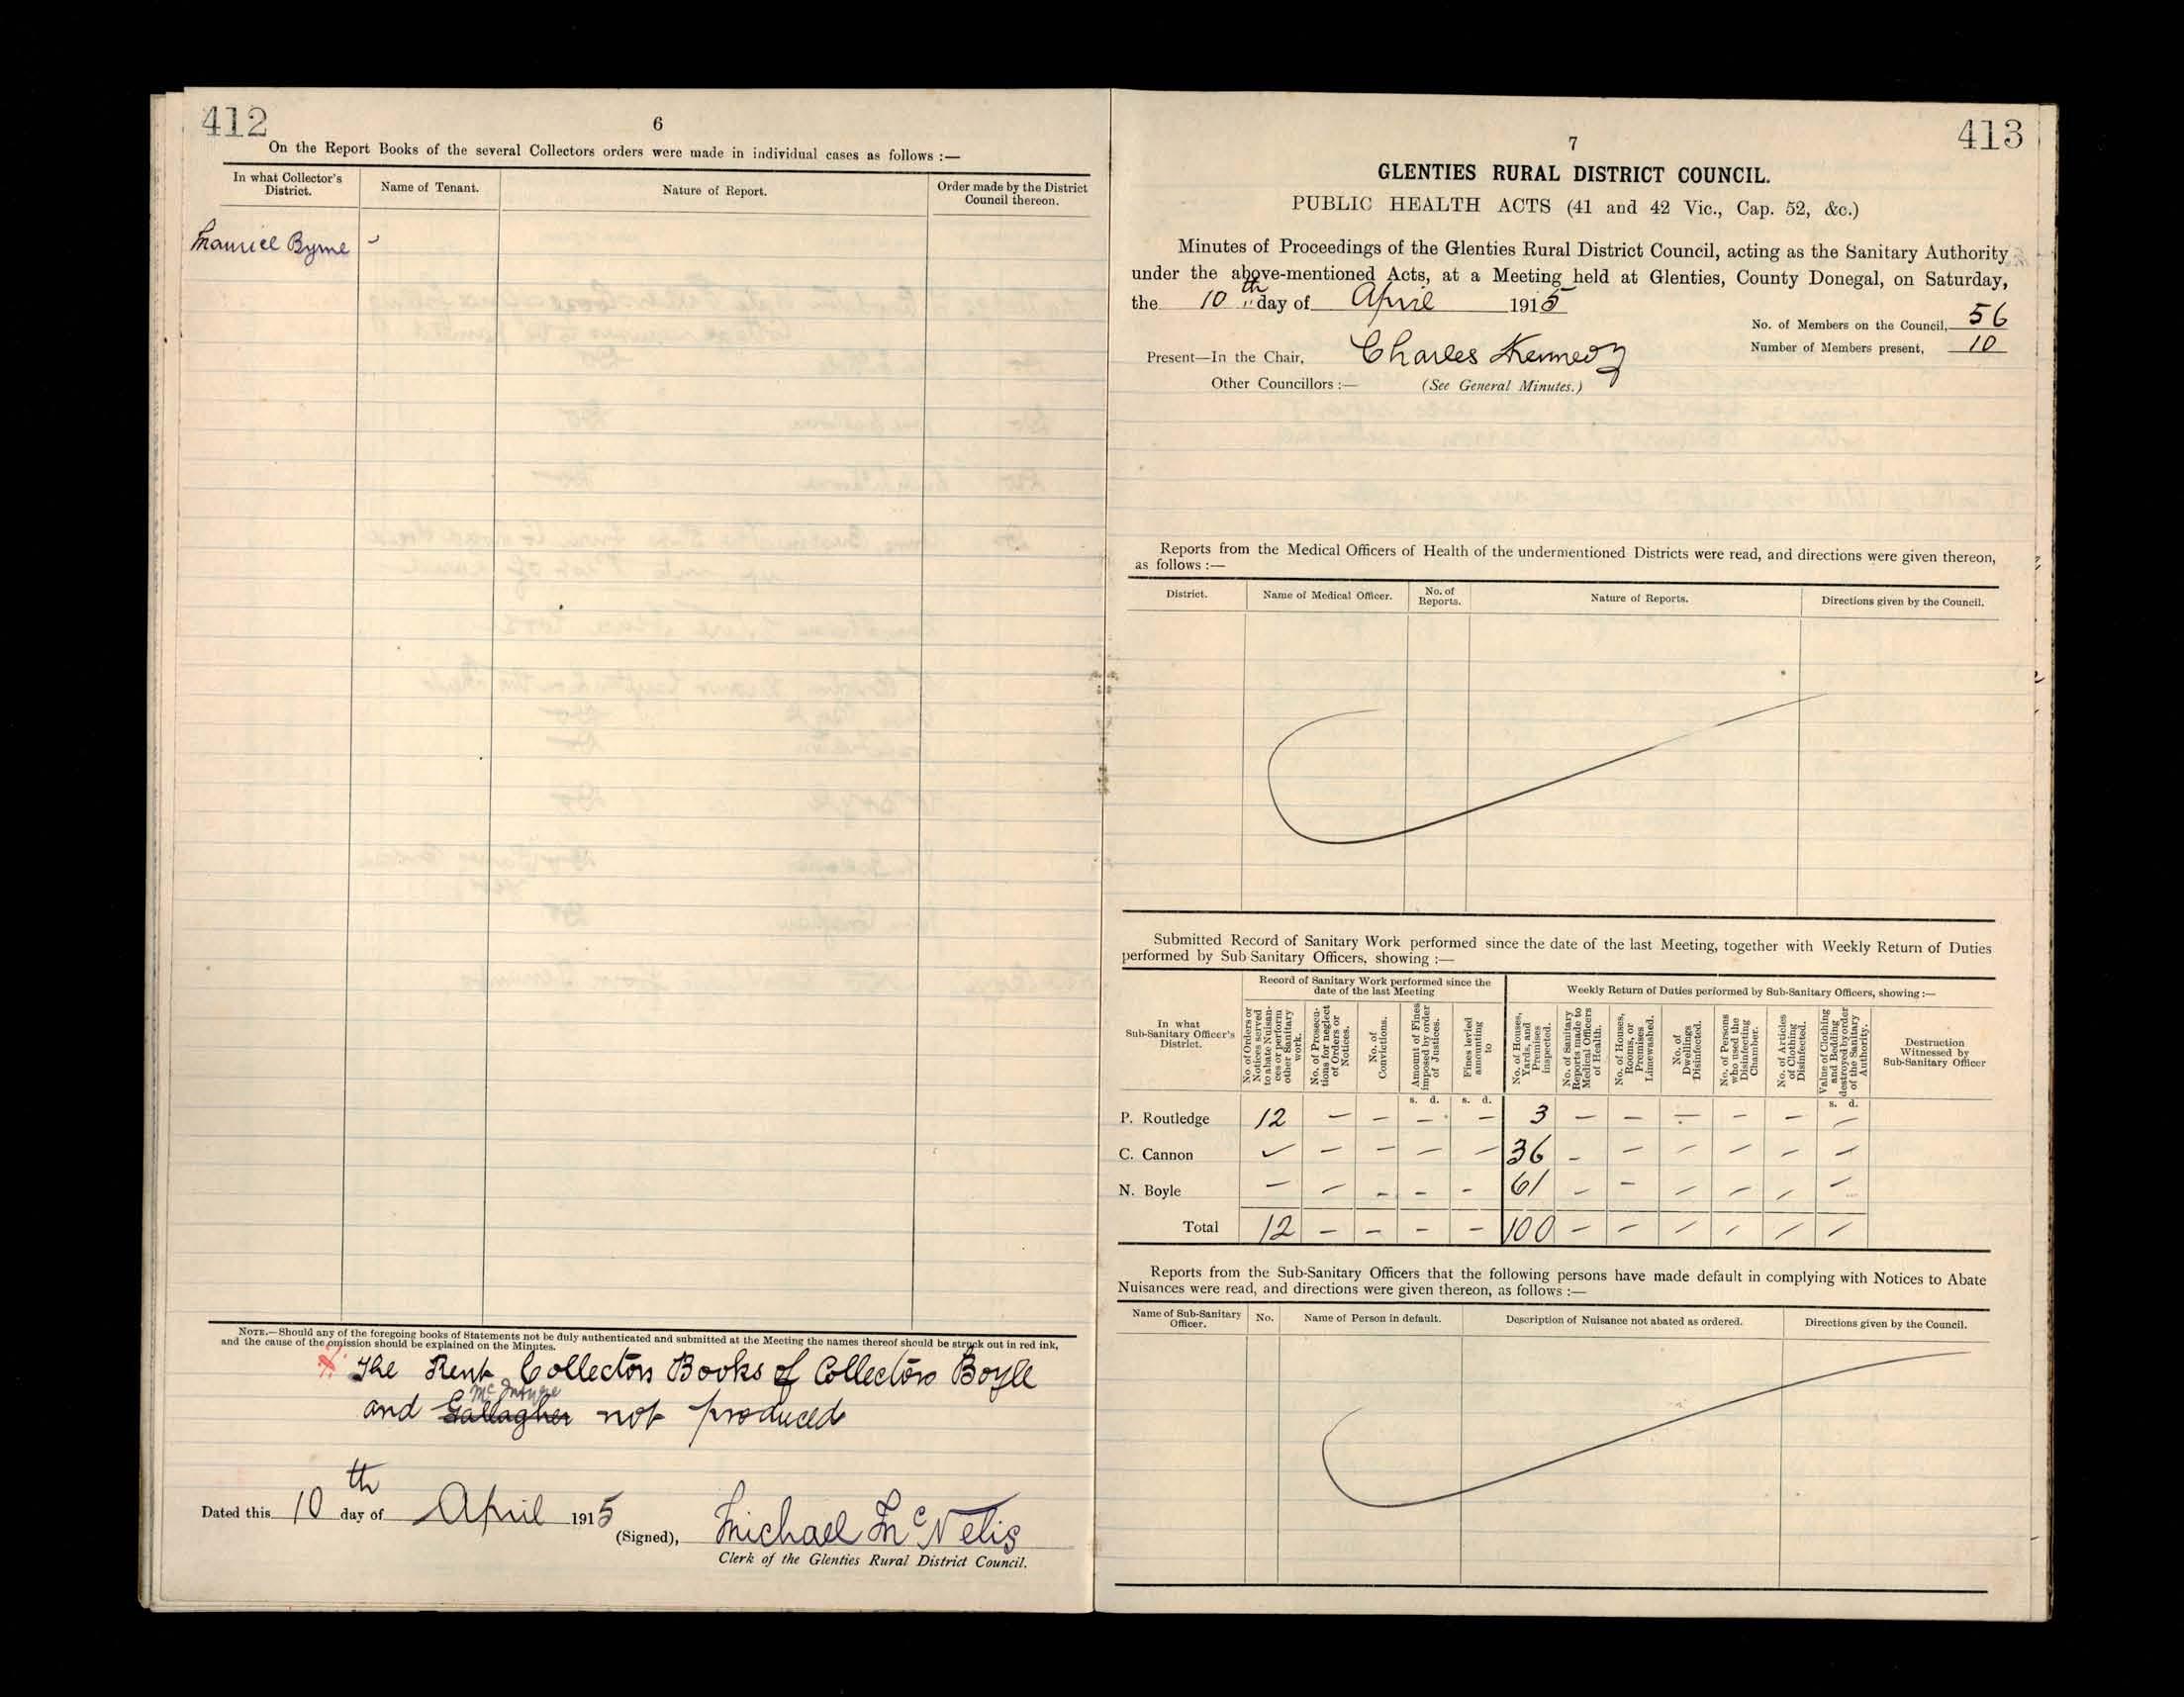 412
6
On the Report Books of the several Collectors orders were made in individual cases as follows :—
In what Collector's District.
Name of Tenant.
Nature of Report.
Order made by the District Council thereon.
Maurice Byrne
NOTE.—Should any of the foregoing books of Statements not be duly authenticated and submitted at the Meeting the names thereof should be struck out in red ink,
and the cause of the omission should be explained on the Minutes.
The Rent Collectors Books of Collectors Boyle
Mc Intyre
and Gallagher not produced
Dated this 10th day of April 1915
(Signed), Michael McNelis
Clerk of the Glenties Rural District Council.
413
7
GLENTIES RURAL DISTRICT COUNCIL.
PUBLIC HEALTH ACTS (41 and 42 Vic., Cap. 52, &c.)
Minutes of Proceedings of the Glenties Rural District Council, acting as the Sanitary Authority
under the above-mentioned Acts, at a Meeting held at Glenties, County Donegal, on Saturday,
the 10th day of April 1915
No. of Members on the Council, 56
Number of Members present, 10
Present—In the Chair, Charles Kennedy
Other Councillors :— (See General Minutes.)
Reports from the Medical Officers of Health of the undermentioned Districts were read, and directions were given thereon,
as follows :—
District.
Name of Medical Officer.
No. of Reports.
Nature of Reports.
Directions given by the Council.
Submitted Record of Sanitary Work performed since the date of the last Meeting, together with Weekly Return of Duties
performed by Sub Sanitary Officers, showing :—
In what Sub-Sanitary Officer's District.
Record of Sanitary Work performed since the date of the last Meeting
Weekly Return of Duties performed by Sub-Sanitary Officers, showing :—
No. of Orders or Notices served to abate Nuisances or perform other Sanitary work.
No. of Prosecutions for neglect of Orders or Notices.
No. of Convictions.
Amount of Fines imposed by order of Justices.
Fines levied amounting to
No. of Houses, Yards, and Premises inspected.
No. of Sanitary Reports made to Medical Officers of Health.
No. of Houses, Rooms, or Premises Limewashed.
No. of Dwellings Disinfected.
No. of Persons who used the Disinfecting Chamber.
No. of Articles of Clothing Disinfected.
Value of Clothing and Bedding destroyed by order of the Sanitary Authority.
Destruction Witnessed by Sub-Sanitary Officer
s. d. s. d. s. d.
P. Routledge 12 — — — — 3 — — — — — —
C. Cannon ✓ — — — — 36 — — — — — —
N. Boyle — — — — — 61 — — — — — —
Total 12 — — — — 100 — — — — — —
Reports from the Sub-Sanitary Officers that the following persons have made default in complying with Notices to Abate
Nuisances were read, and directions were given thereon, as follows :—
Name of Sub-Sanitary Officer.
No.
Name of Person in default.
Description of Nuisance not abated as ordered.
Directions given by the Council.